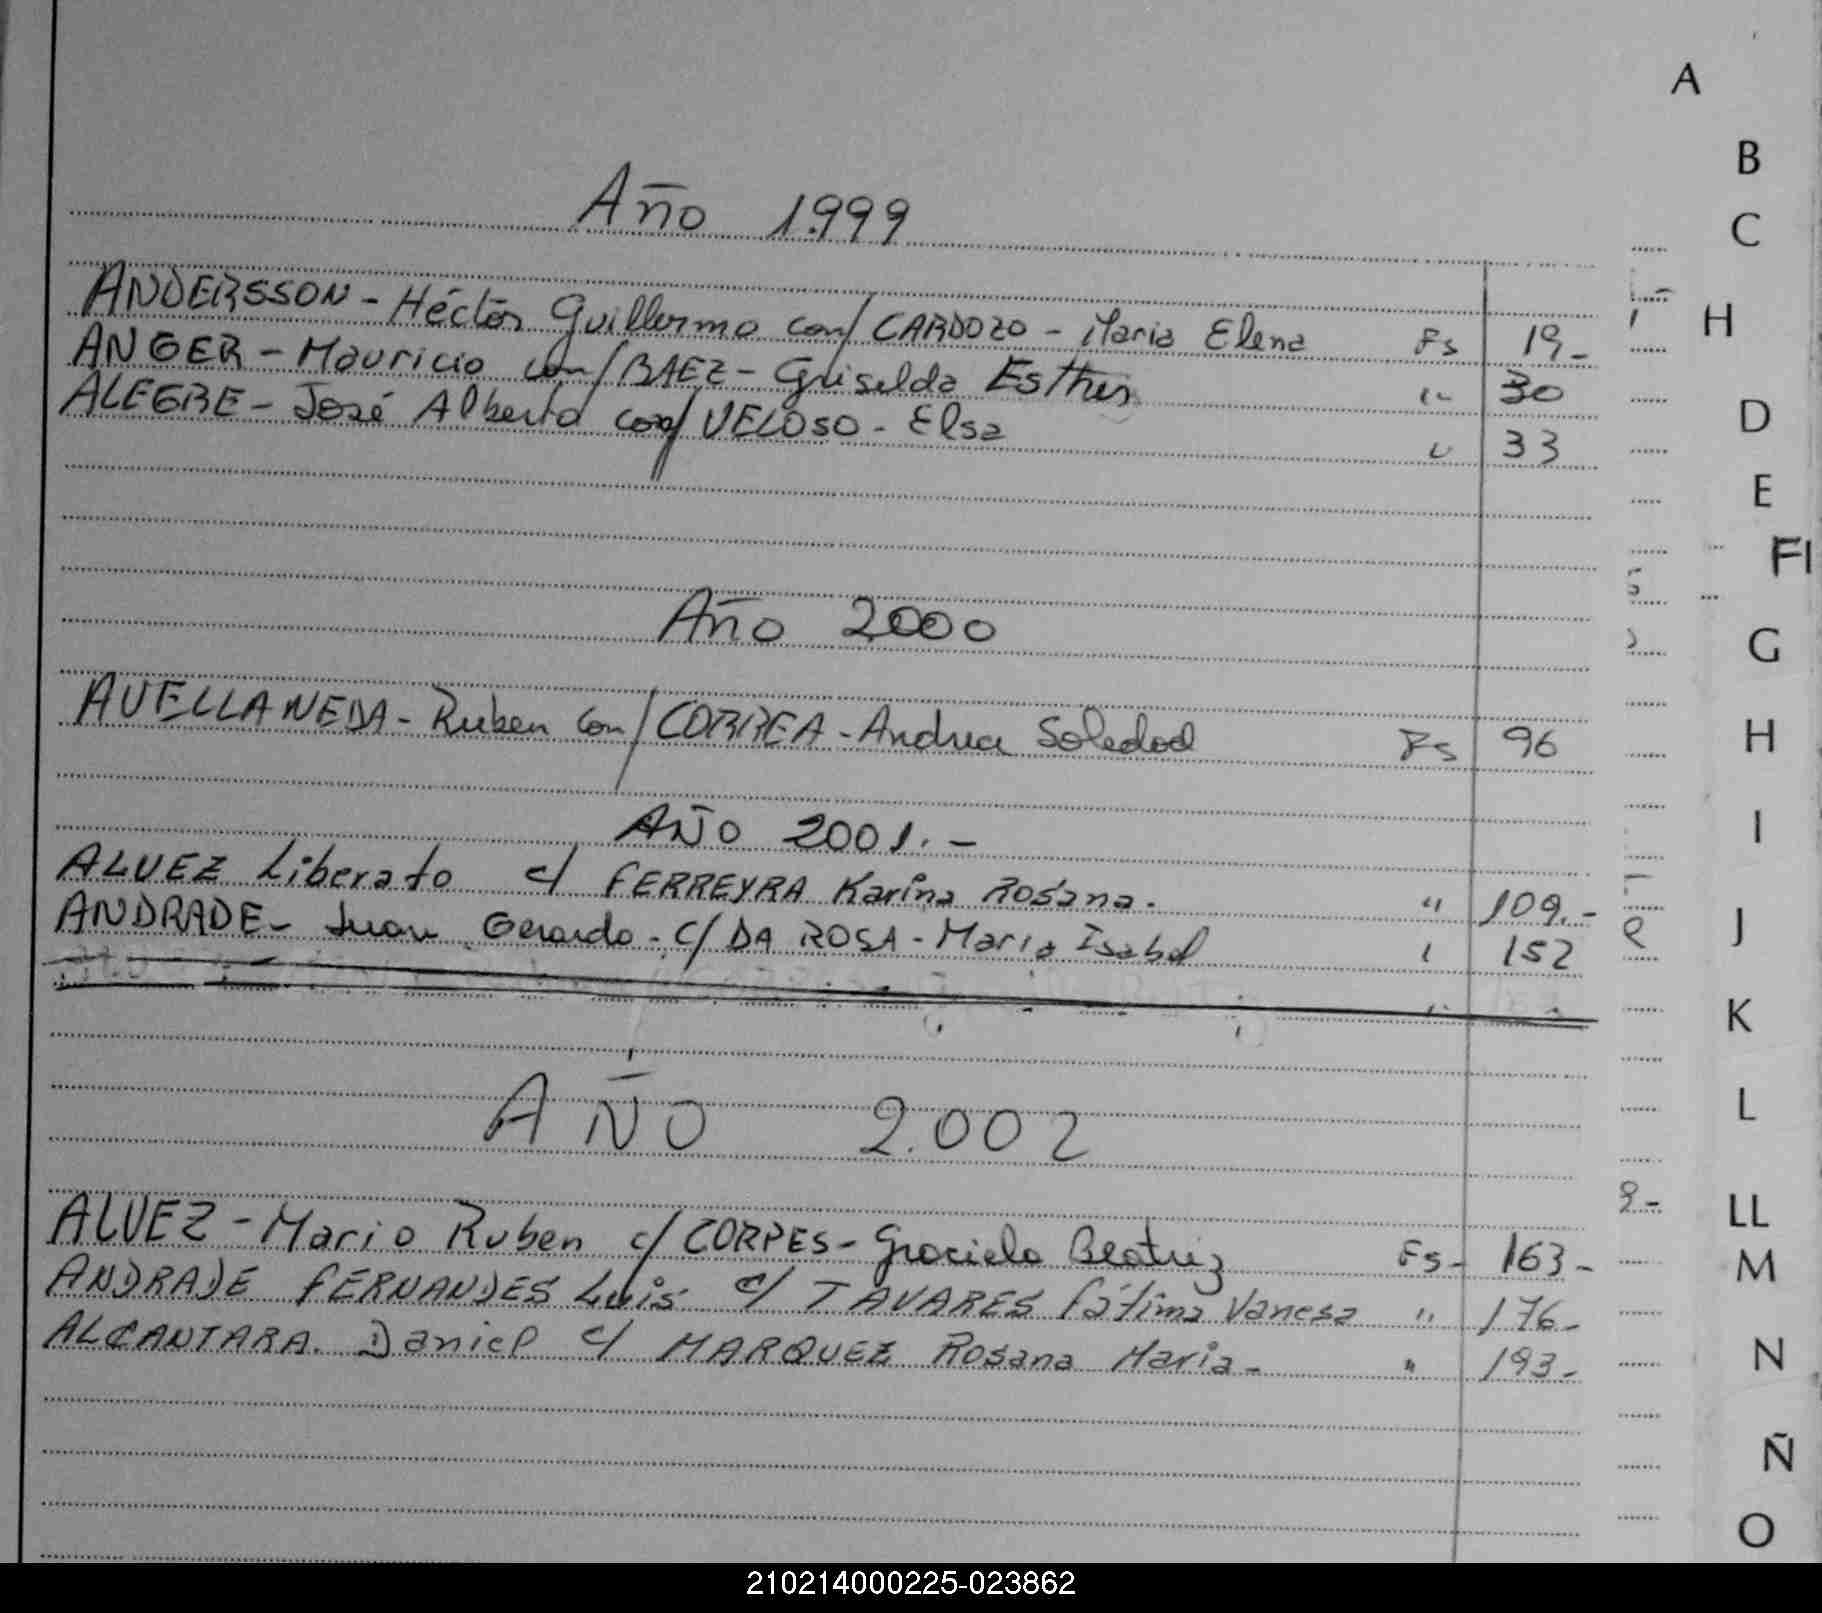 Año 1.999
ANDERSSON - Héctor Guillermo con/ CARDOZO - Maria Elena Fs 19.-
ANGER - Mauricio con/ BAEZ - Griselda Esther " 30
ALEGRE - José Alberto con/ VELOSO - Elsa " 33
Año 2000
AVELLANEDA - Ruben con/ CORREA - Andrea Soledad Fs 96
AÑO 2001.-
ALVEZ Liberato c/ FERREYRA Karina Rosana. " 109.-
ANDRADE - Juan Gerardo - c/ DA ROSA - Maria Isabel " 152
AÑO 2.002
ALVEZ - Mario Ruben c/ CORPES - Graciela Beatriz Fs- 163-
ANDRADE FERNANDES Luis c/ TAVARES Fátima Vanesa " 176-
ALCANTARA. Daniel c/ MARQUEZ Rosana Maria- " 193-
A
B
C
H
D
E
FI
G
H
I
J
K
L
LL
M
N
Ñ
O
210214000225-023862